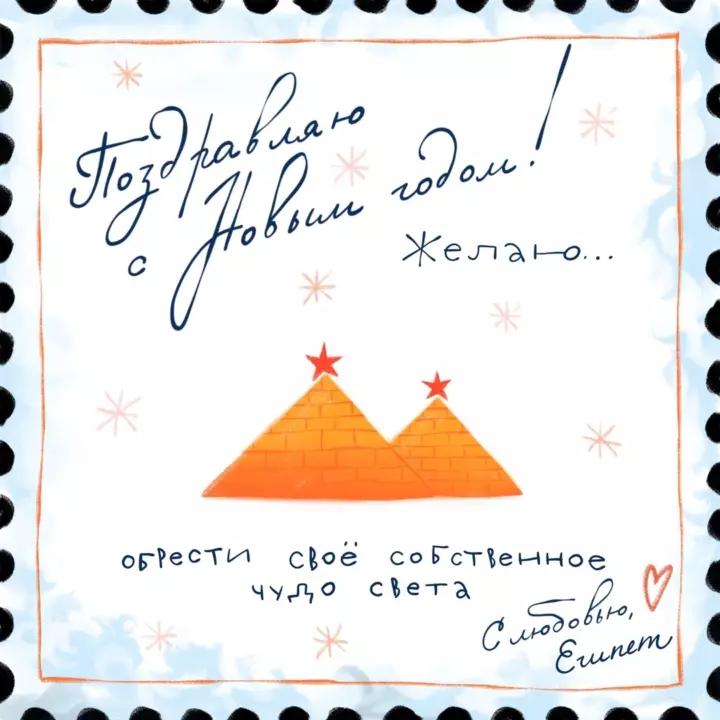 Поздравляю
с Новым годом!
Желаю...
обрести своё собственное
чудо света
С любовью,
Египет